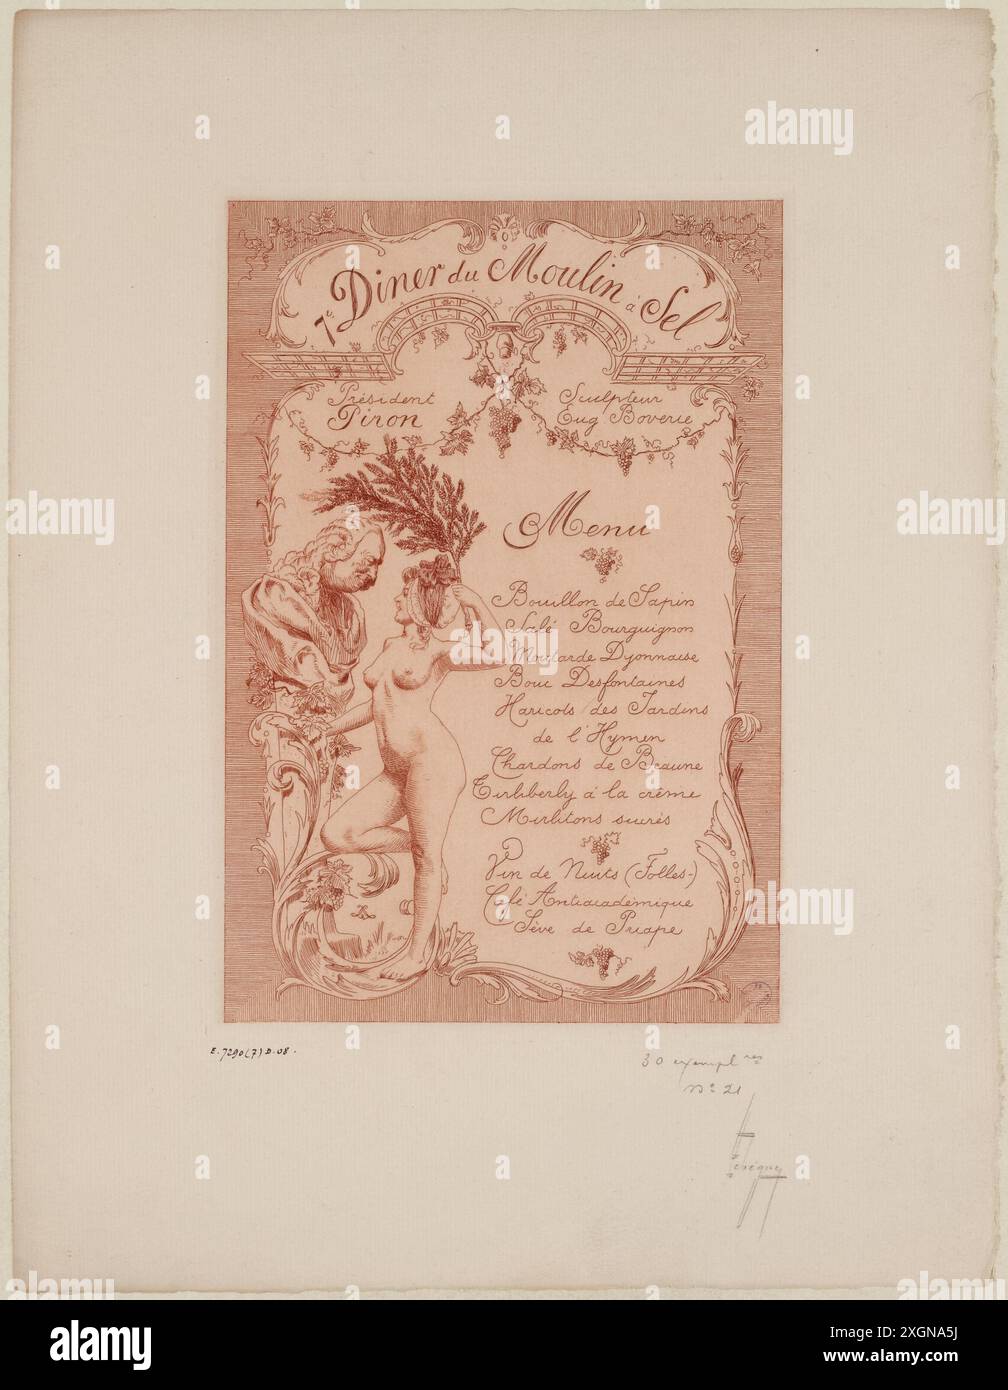 7e Diner du Moulin à Sel
Président
Piron
Sculpteur
Eug Boverie
Menu
Bouillon de Sapin
Salé Bourguignon
Moutarde Dyonnaise
Bouc Desfontaines
Haricots des Jardins
de l'Hymen
Chardons de Beaune
Tirliberly à la crême
Mirlitons sucrés
Vin de Nuits (Folles-)
Café Antiacadémique
Sève de Priape
E.7290(7)D.08.
30 exemplres
No 21
alamy
alamy
Image ID: 2XGNA5J
www.alamy.com